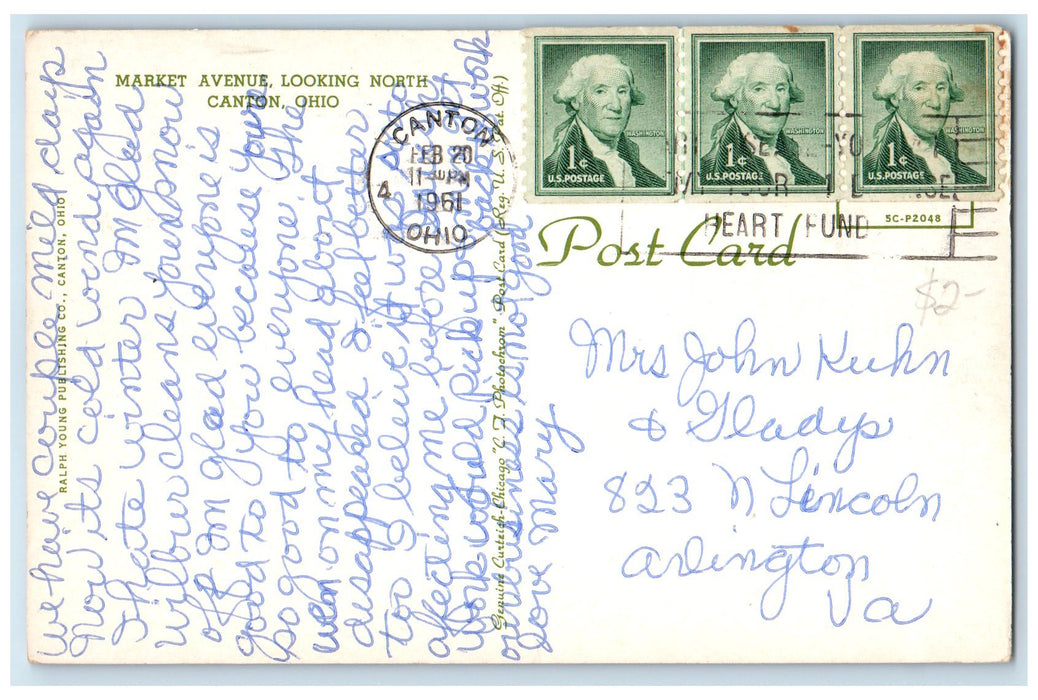 MARKET AVENUE, LOOKING NORTH
CANTON, OHIO
RALPH YOUNG PUBLISHING CO., CANTON, OHIO
We have couple mild days
now its cold & windy again
I hate winter Im glad
Wilbur cleans your snow
off Im glad everyone is
good to you because you're
so good to everyone. The
wen on my head about
disappeared I feel better
too I believe it was
affecting me before
work would pick up
business is no good
Love Mary
Genuine Curteich-Chicago "C.T. Photochrom" Post Card (Reg. U.S. Pat. Off.)
CANTON
FEB 20
11 PM
1961
OHIO
4
HEART FUND
WASHINGTON
1¢
U.S. POSTAGE
WASHINGTON
1¢
U.S. POSTAGE
WASHINGTON
1¢
U.S. POSTAGE
5C-P2048
Post Card
$2-
Mrs John Kuhn
& Gladys
823 N Lincoln
Arlington
Va